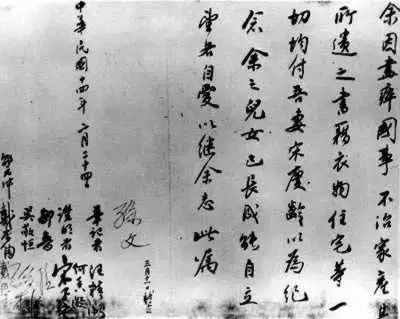 余因盡瘁國事不治家產其
所遺之書籍衣物住宅等一
切均付吾妻宋慶齡以為紀
念余之兒女已長成能自立
望各自愛以繼余志此屬
孫文
三月十一日補簽
中華民國十四年二月二十四
筆記者 汪精衛
何香凝
證明者 宋子文
鄒魯
吳敬恒
邵元冲